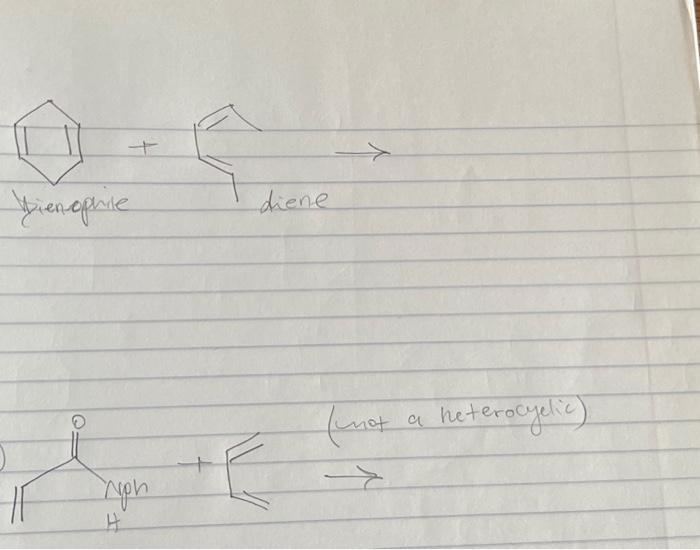 +
Dienophile diene
(not a heterocyclic)
O
) +
Nph
H